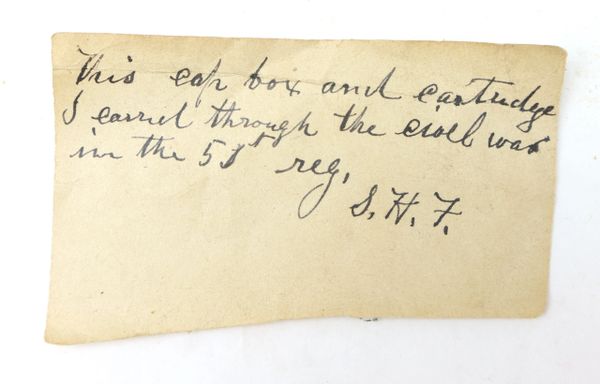 This cap box and cartridge
I carried through the civel war
in the 51st reg,
S. H. F.